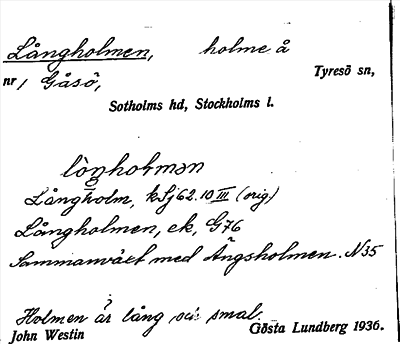 Långholmen, holme å
Tyresö sn,
nr 1 Gåsö,
Sotholms hd, Stockholms l.
lòŋhoɫmən
Långholm, kSj62.10 III (orig)
Långholmen, ek, G76
Sammanväxt med Ängsholmen. N35
Holmen är lång och smal.
John Westin Gösta Lundberg 1936.